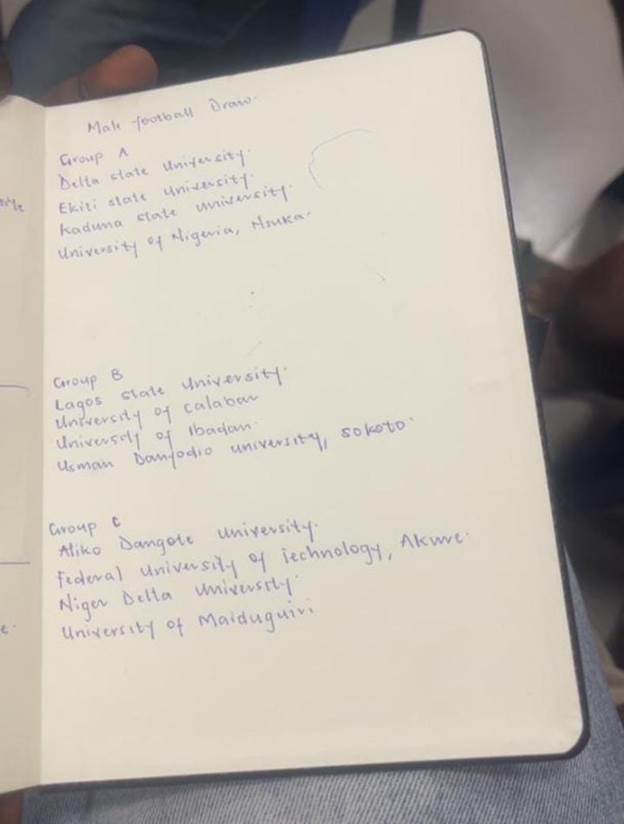 Male football Draw.
Group A
Delta state university.
Ekiti state university.
kaduna state university.
University of Nigeria, Nsuka.
Group B
Lagos state university.
University of calabar
University of Ibadan.
Usman Danfodio university, sokoto.
Group C
Aliko Dangote university.
Federal University of Technology, Akure.
Niger Delta university.
University of Maiduguiri